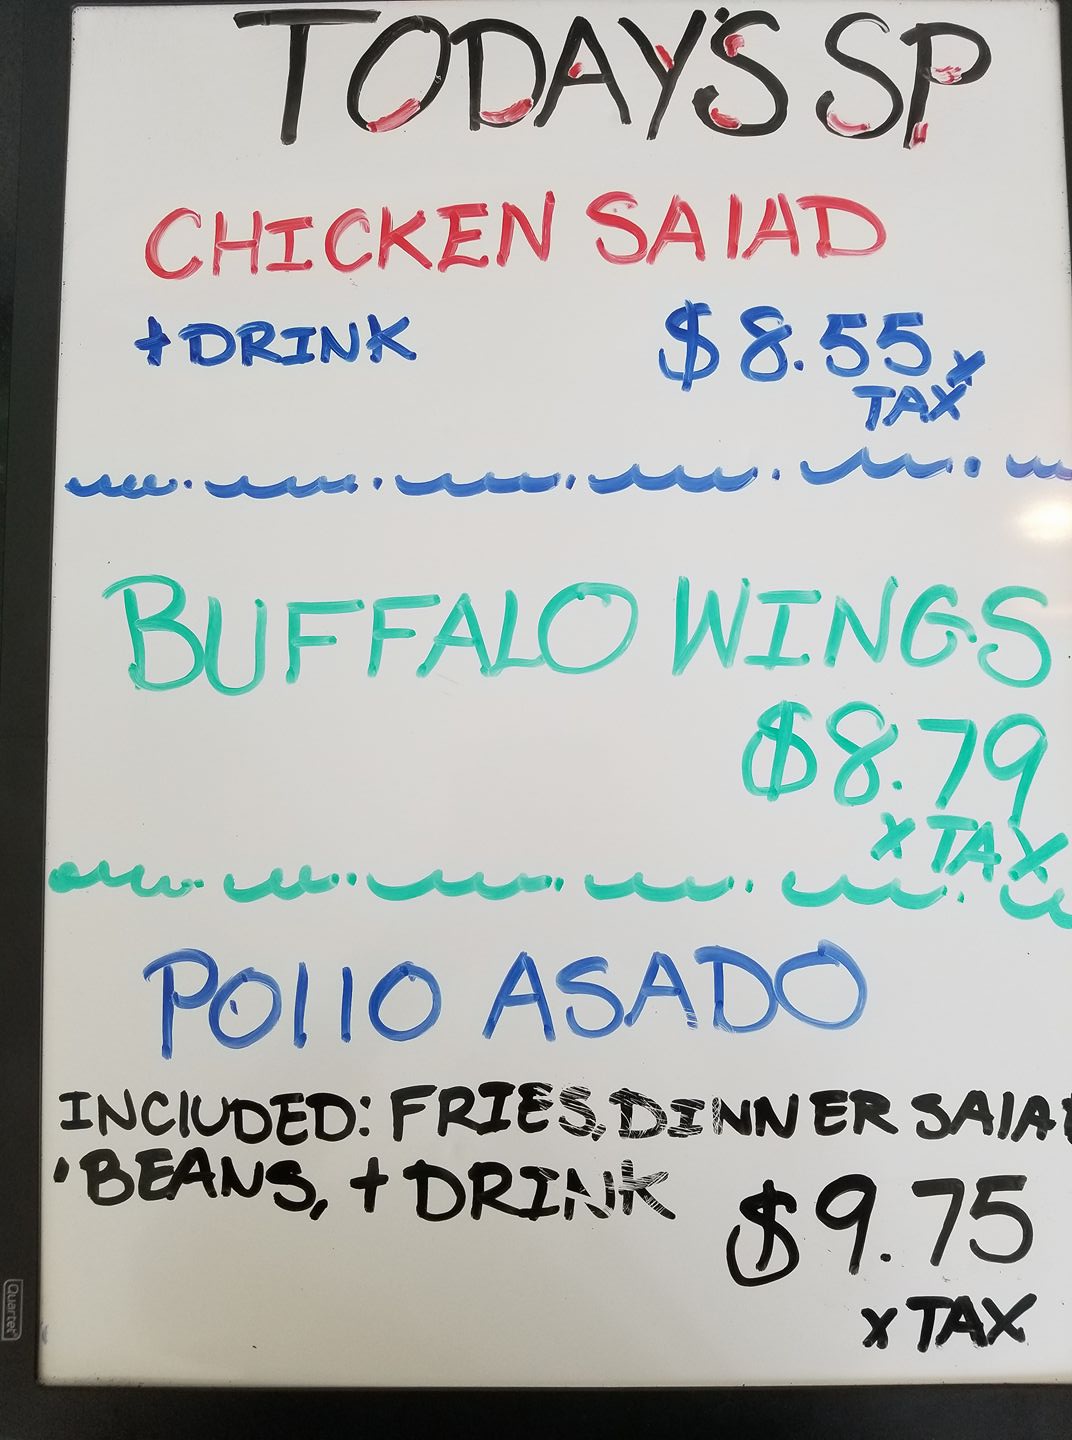 TODAY'S SP
CHICKEN SAlAD
+DRINK $8.55 x
TAX
BUFFALO WINGS
$8.79
x TAX
POllO ASADO
INClUDED: FRIES, DINNER SAlAD
'BEANS, + DRINK $9.75
x TAX
Quartet